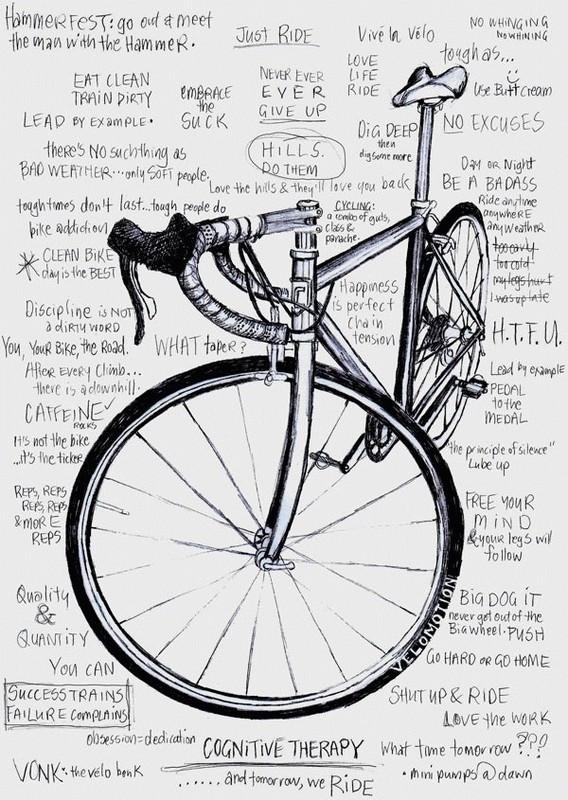 HAMMERFEST: go out & meet
the man with the HAMMER.
JUST RIDE
Vivé la Vélo
NO WHINGING
NO WHINING
tough as...
EAT CLEAN
TRAIN DIRTY
EMBRACE
the
SUCK
NEVER EVER
EVER
GIVE UP
LOVE
LIFE
RIDE
Use Butt Cream
LEAD BY EXAMPLE.
Dig DEEP
then
dig some more
NO EXCUSES
there's NO such thing as
BAD WEATHER...only SOFT people.
HILLS.
DO THEM
Love the hills & they'll love you back
Day or Night
BE A BADASS
Ride anytime
anywhere
any weather
too early
too cold
my legs hurt
I was up late
tough times don't last...tough people do
bike addiction
CYCLING:
a combo of guts,
class &
panache.
CLEAN BIKE
day is the BEST
Happiness
is perfect
Chain
tension
Discipline is NOT
a dirty WORD
You, Your Bike, the Road.
WHAT taper?
H.T.F.U.
After EVERY Climb...
there is a downhill.
Lead by example
PEDAL
to the
MEDAL
CAFFEINE
ROCKS
It's not the bike
...it's the ticker
"the principle of silence"
Lube up
REPS, REPS
REPS, REPS
& MORE
REPS
FREE YOUR
MIND
& your legs will
follow
Quality
&
QUANTITY
BIG DOG iT
never get out of the
Big wheel. PUSH
VELOMOTION
YOU CAN
GO HARD OR GO HOME
SUCCESS TRAINS
FAILURE COMPLAINS
SHUT UP & RIDE
LOVE the WORK
obsession=dedication
COGNiTiVE THERAPY
What time tomorrow ???
VONK: the vélo bonk
......and tomorrow, we RiDE
• mini pumps @ dawn